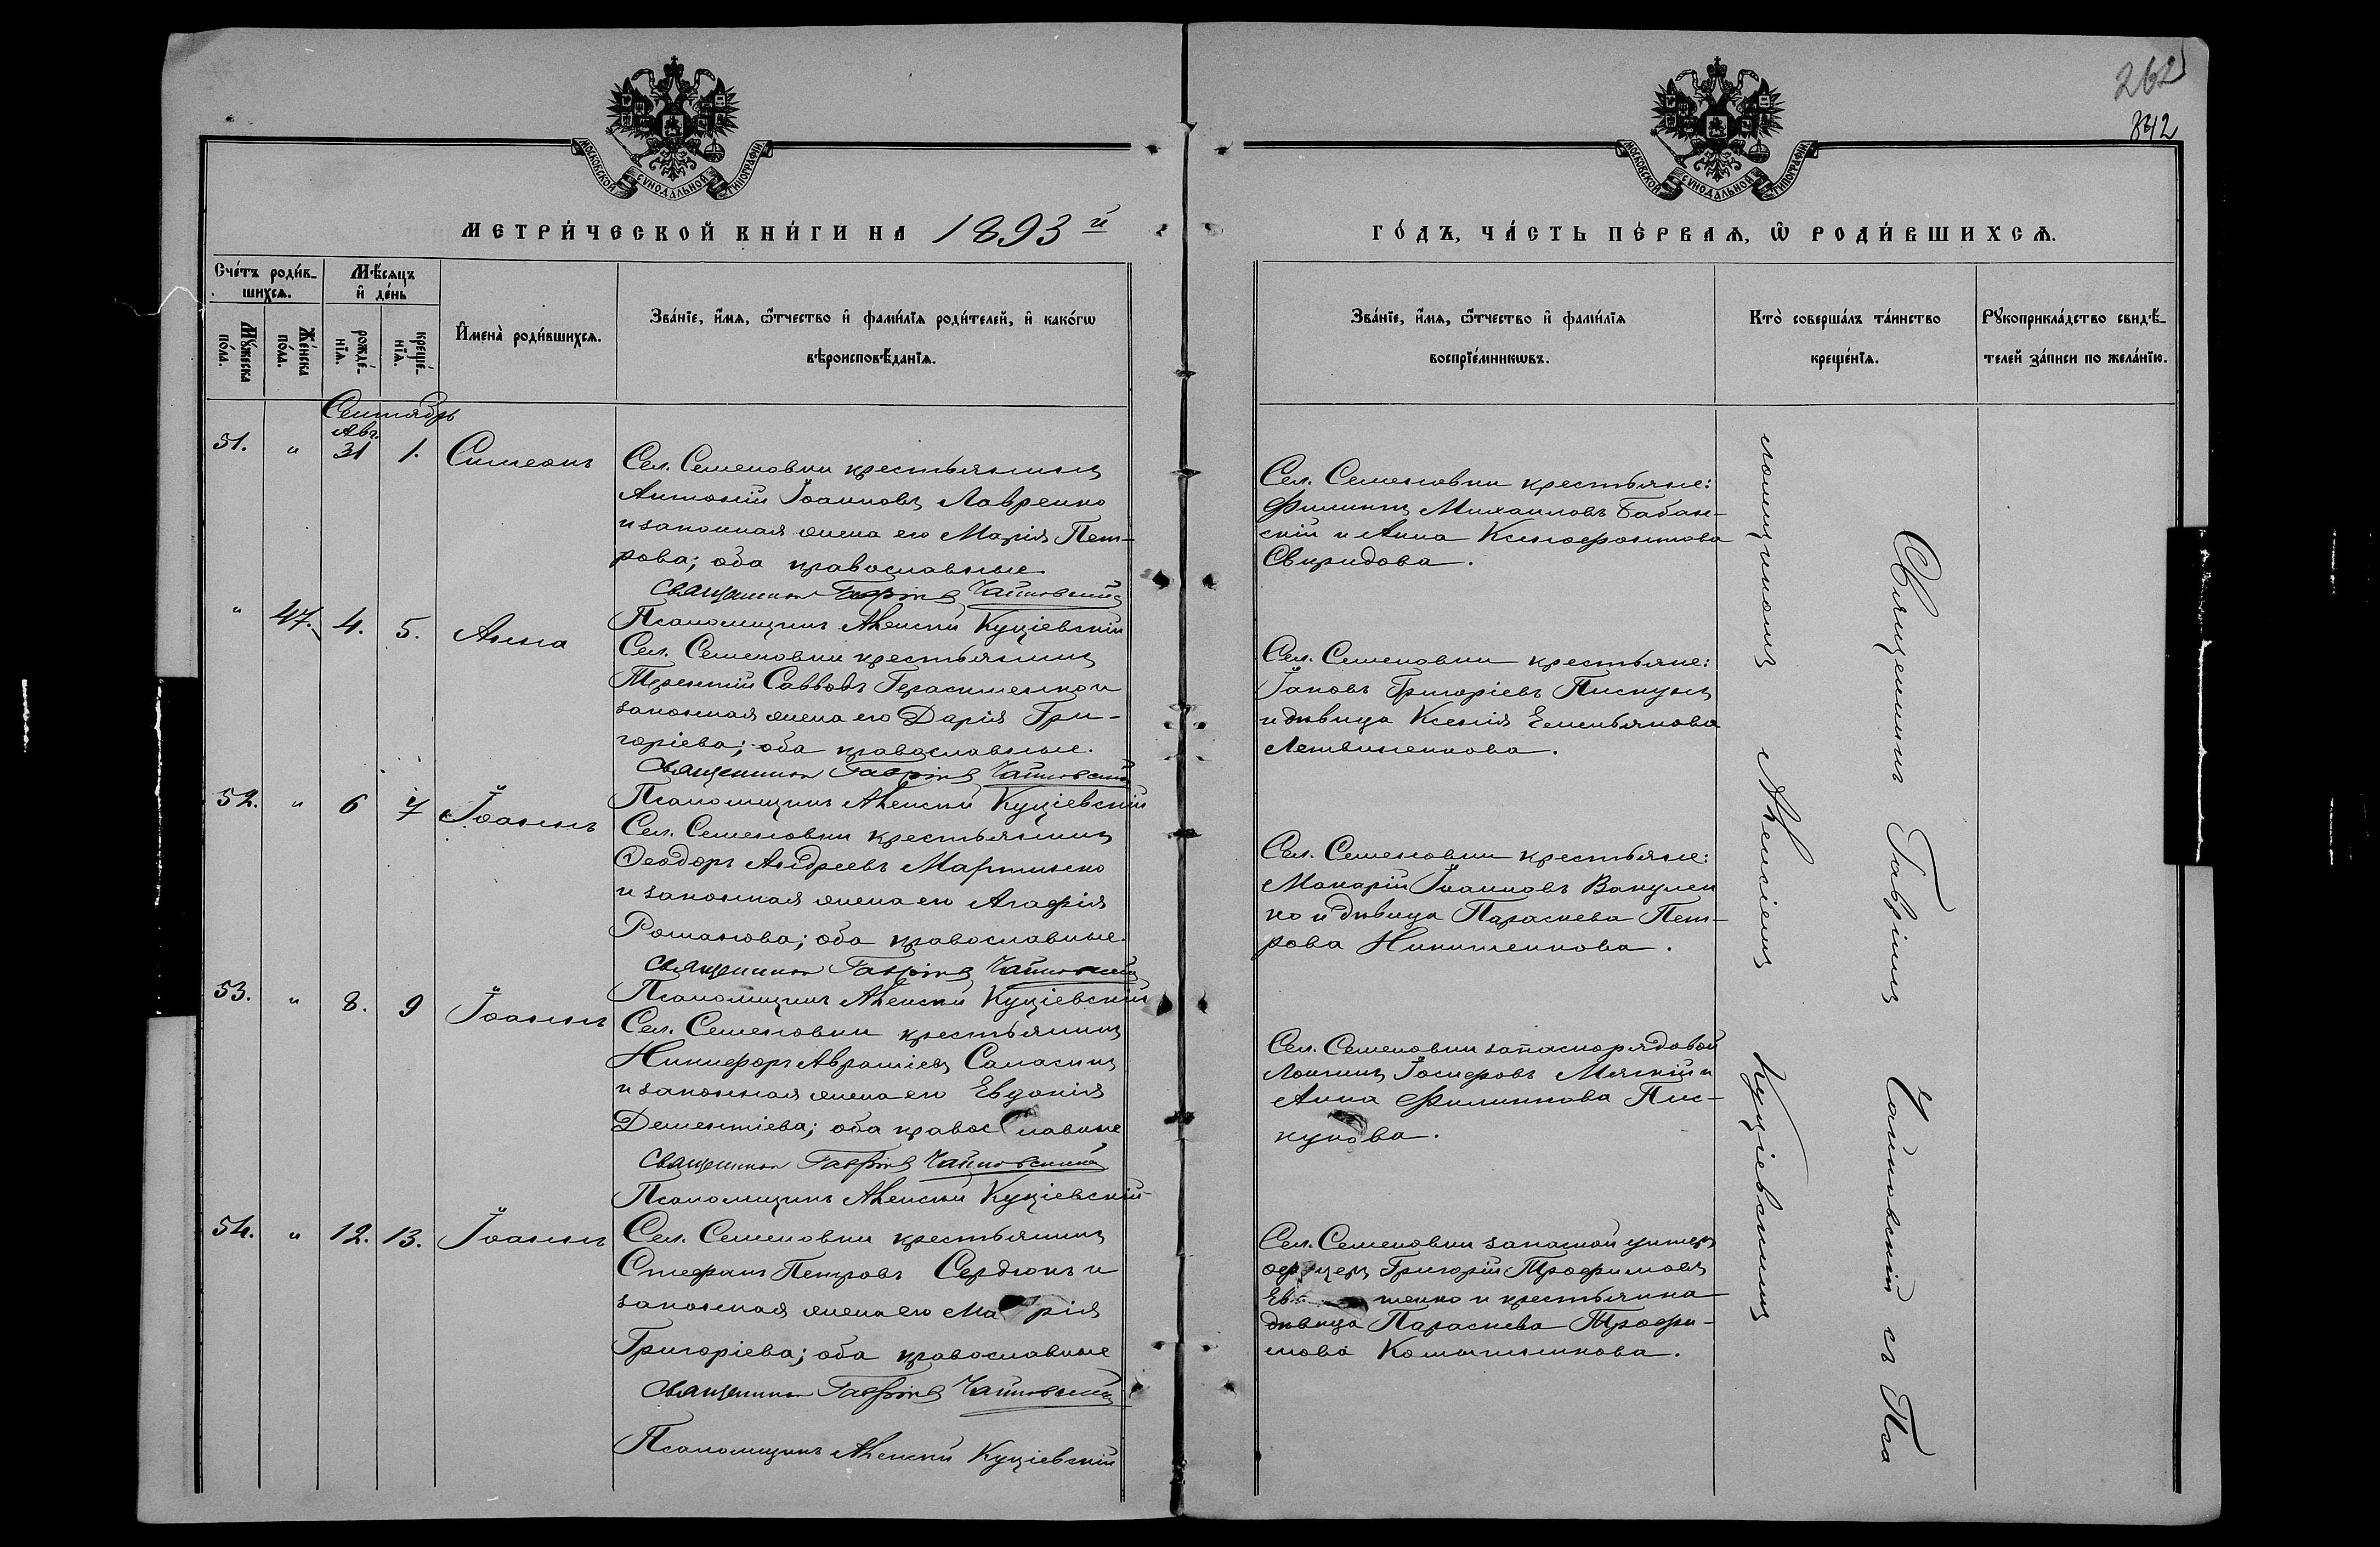 262
842
МОСКОВСКОЙ СУНОДАЛЬНОЙ ТИПОГРАФІИ
МОСКОВСКОЙ СУНОДАЛЬНОЙ ТИПОГРАФІИ
МЕТРИ́ЧЕСКОЙ КНИ́ГИ НА 1893 й
ГО́ДЪ, ЧА́СТЬ ПЕ́РВАѦ, Ѿ РОДИ́ВШИХСѦ.
Сче́тъ роди́в-
шихсѧ.
Мꙋ́жеска
по́ла.
Же́нска
по́ла.
Мѣ́сѧцъ
и де́нь
рожде́-
нїѧ.
креще́-
нїѧ.
Имена̀ роди́вшихсѧ.
Зва́нїе, и́мѧ, ѻ́тчество и фами́лїѧ роди́телей, и како́гѡ
вѣроисповѣ́данїѧ.
Зва́нїе, и́мѧ, ѻ́тчество и фами́лїѧ
воспрїе́мникѡвъ.
Кто̀ соверша́лъ та́инство
креще́нїѧ.
Рꙋкоприкла́дство свидѣ́-
телей за́писи по жела́нїю.
Сентябрь
Авг.
51. " 31 1. Симеонъ
Сел. Семеновки крестьянинъ
Антоній Іоанновъ Лавренко
и законная жена его Марія Пет-
рова; оба православные.
Священникъ Гавріилъ Чайковскій
Псаломщикъ Алексій Куціевскій
Сел. Семеновки крестьяне:
Филиппъ Михаиловъ Бабан-
скій и Анна Ксенофонтова
Свиридова.
" 47. 4. 5. Анна
Сел. Семеновки крестьянинъ
Терентій Саввовъ Герасименко и
законная жена его Дарія Гри-
горіева; оба православные.
Священникъ Гавріилъ Чайковскій
Псаломщикъ Алексій Куціевскій
Сел. Семеновки крестьяне:
Іаковъ Григоріевъ Пискунъ
и дѣвица Ксенія Емельянова
Летвиненкова.
52. " 6 7 Іоаннъ
Сел. Семеновки крестьянинъ
Ѳеодоръ Андреевъ Мартиненко
и законная жена его Агафія
Романова; оба православные.
Священникъ Гавріилъ Чайковскій
Псаломщикъ Алексій Куціевскій
Сел. Семеновки крестьяне:
Макарій Іоанновъ Вакулен
ко и дѣвица Параскева Пет-
рова Никитенкова.
53. " 8. 9 Іоаннъ
Сел. Семеновки крестьянинъ
Никифоръ Авраміевъ Саласинъ
и законная жена его Евдокія
Дементіева; оба православные
Священникъ Гавріилъ Чайковскій
Псаломщикъ Алексій Куціевскій
Сел. Семеновки запасно рядовой
Логинъ Іосифовъ Мягкій и
Анна Филиппова Пис-
кунова.
54. " 12. 13. Іоаннъ
Сел. Семеновки крестьянинъ
Стефанъ Петровъ Сердюкъ и
законная жена его Марія
Григоріева; оба православные
Священникъ Гавріилъ Чайковскій
Псаломщикъ Алексій Куціевскій
Сел. Семеновки запасной унтеръ
офицеръ Григорій Трофимовъ
Ев тенко и крестьянка
дѣвица Параскева Трофи-
мова
Священникъ Гавріилъ Чайковскій съ Пса
ломщикомъ Алексіемъ Куціевскимъ